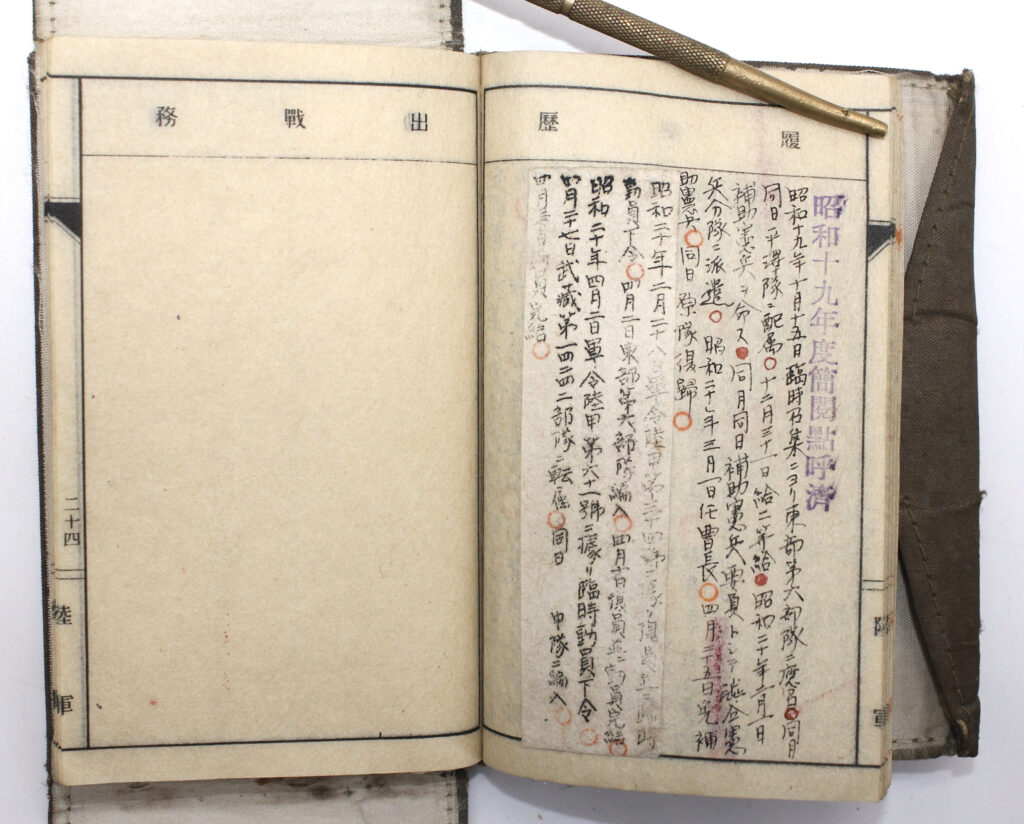 履歷
昭和十九年度簡閱點呼濟
昭和十九年十月十五日臨時召集ニヨリ東部第六部隊ニ應召同月
同日平澤隊ニ配属十二月三十一日給二等給昭和二十年二月一日
補助憲兵ヲ命ス同月同日補助憲兵要員トシテ憲
兵分隊ニ派遣昭和二十年三月一日任曹長四月二十五日免補
助憲兵同日原隊復歸
昭和二十年二月二十八日軍令陸甲第三十四號ニ據リ復員並ニ臨時
動員下令四月二日東部第六部隊編入四月十日復員並ニ動員完結
昭和二十年四月二日軍令陸甲第六十一號ニ據リ臨時動員下令
四月二十七日武藏第一四二四二部隊ニ転属同日 中隊ニ編入
四月動員完結
陸軍
出戰務
二十四
陸軍